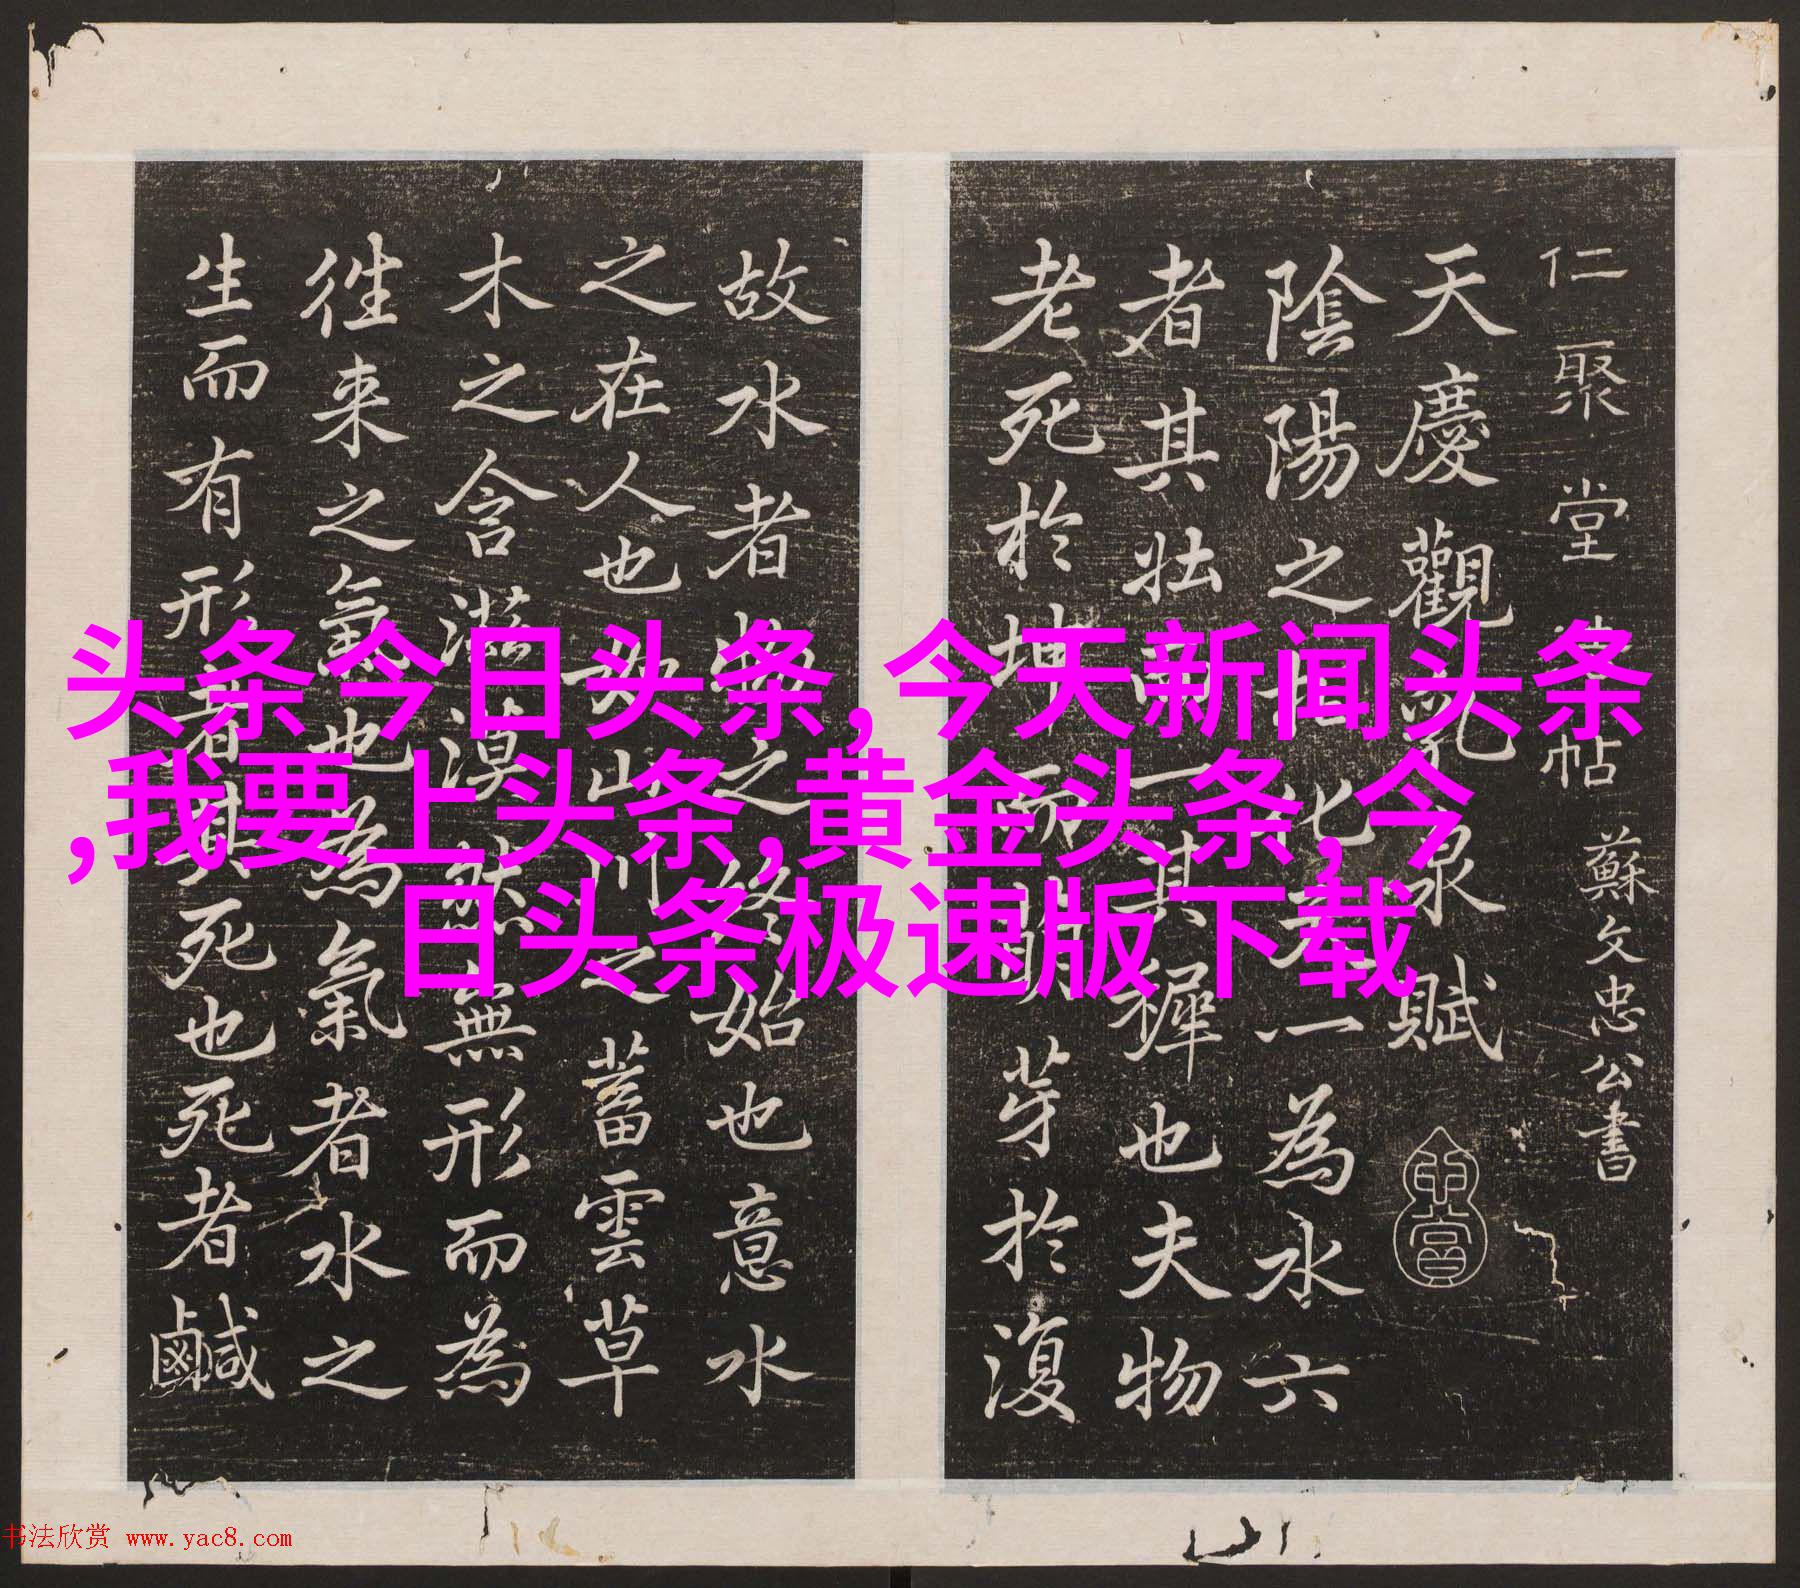 仁聚堂帖 蘇文忠公書
天慶觀乳泉賦
陰陽之相化天一為水六
者其壯而一其穉也夫物
老死於坤而萌芽於復
故水者物之終始也意水
之在人也如山川之蓄雲草
木之含滋漠然無形而為
往来之氣也為氣者水之
生而有形者其死也死者鹹
头条今日头条, 今天新闻头条
,我要上头条,黄金头条,今
日头条极速版下载
书法欣赏 www.yac8.com